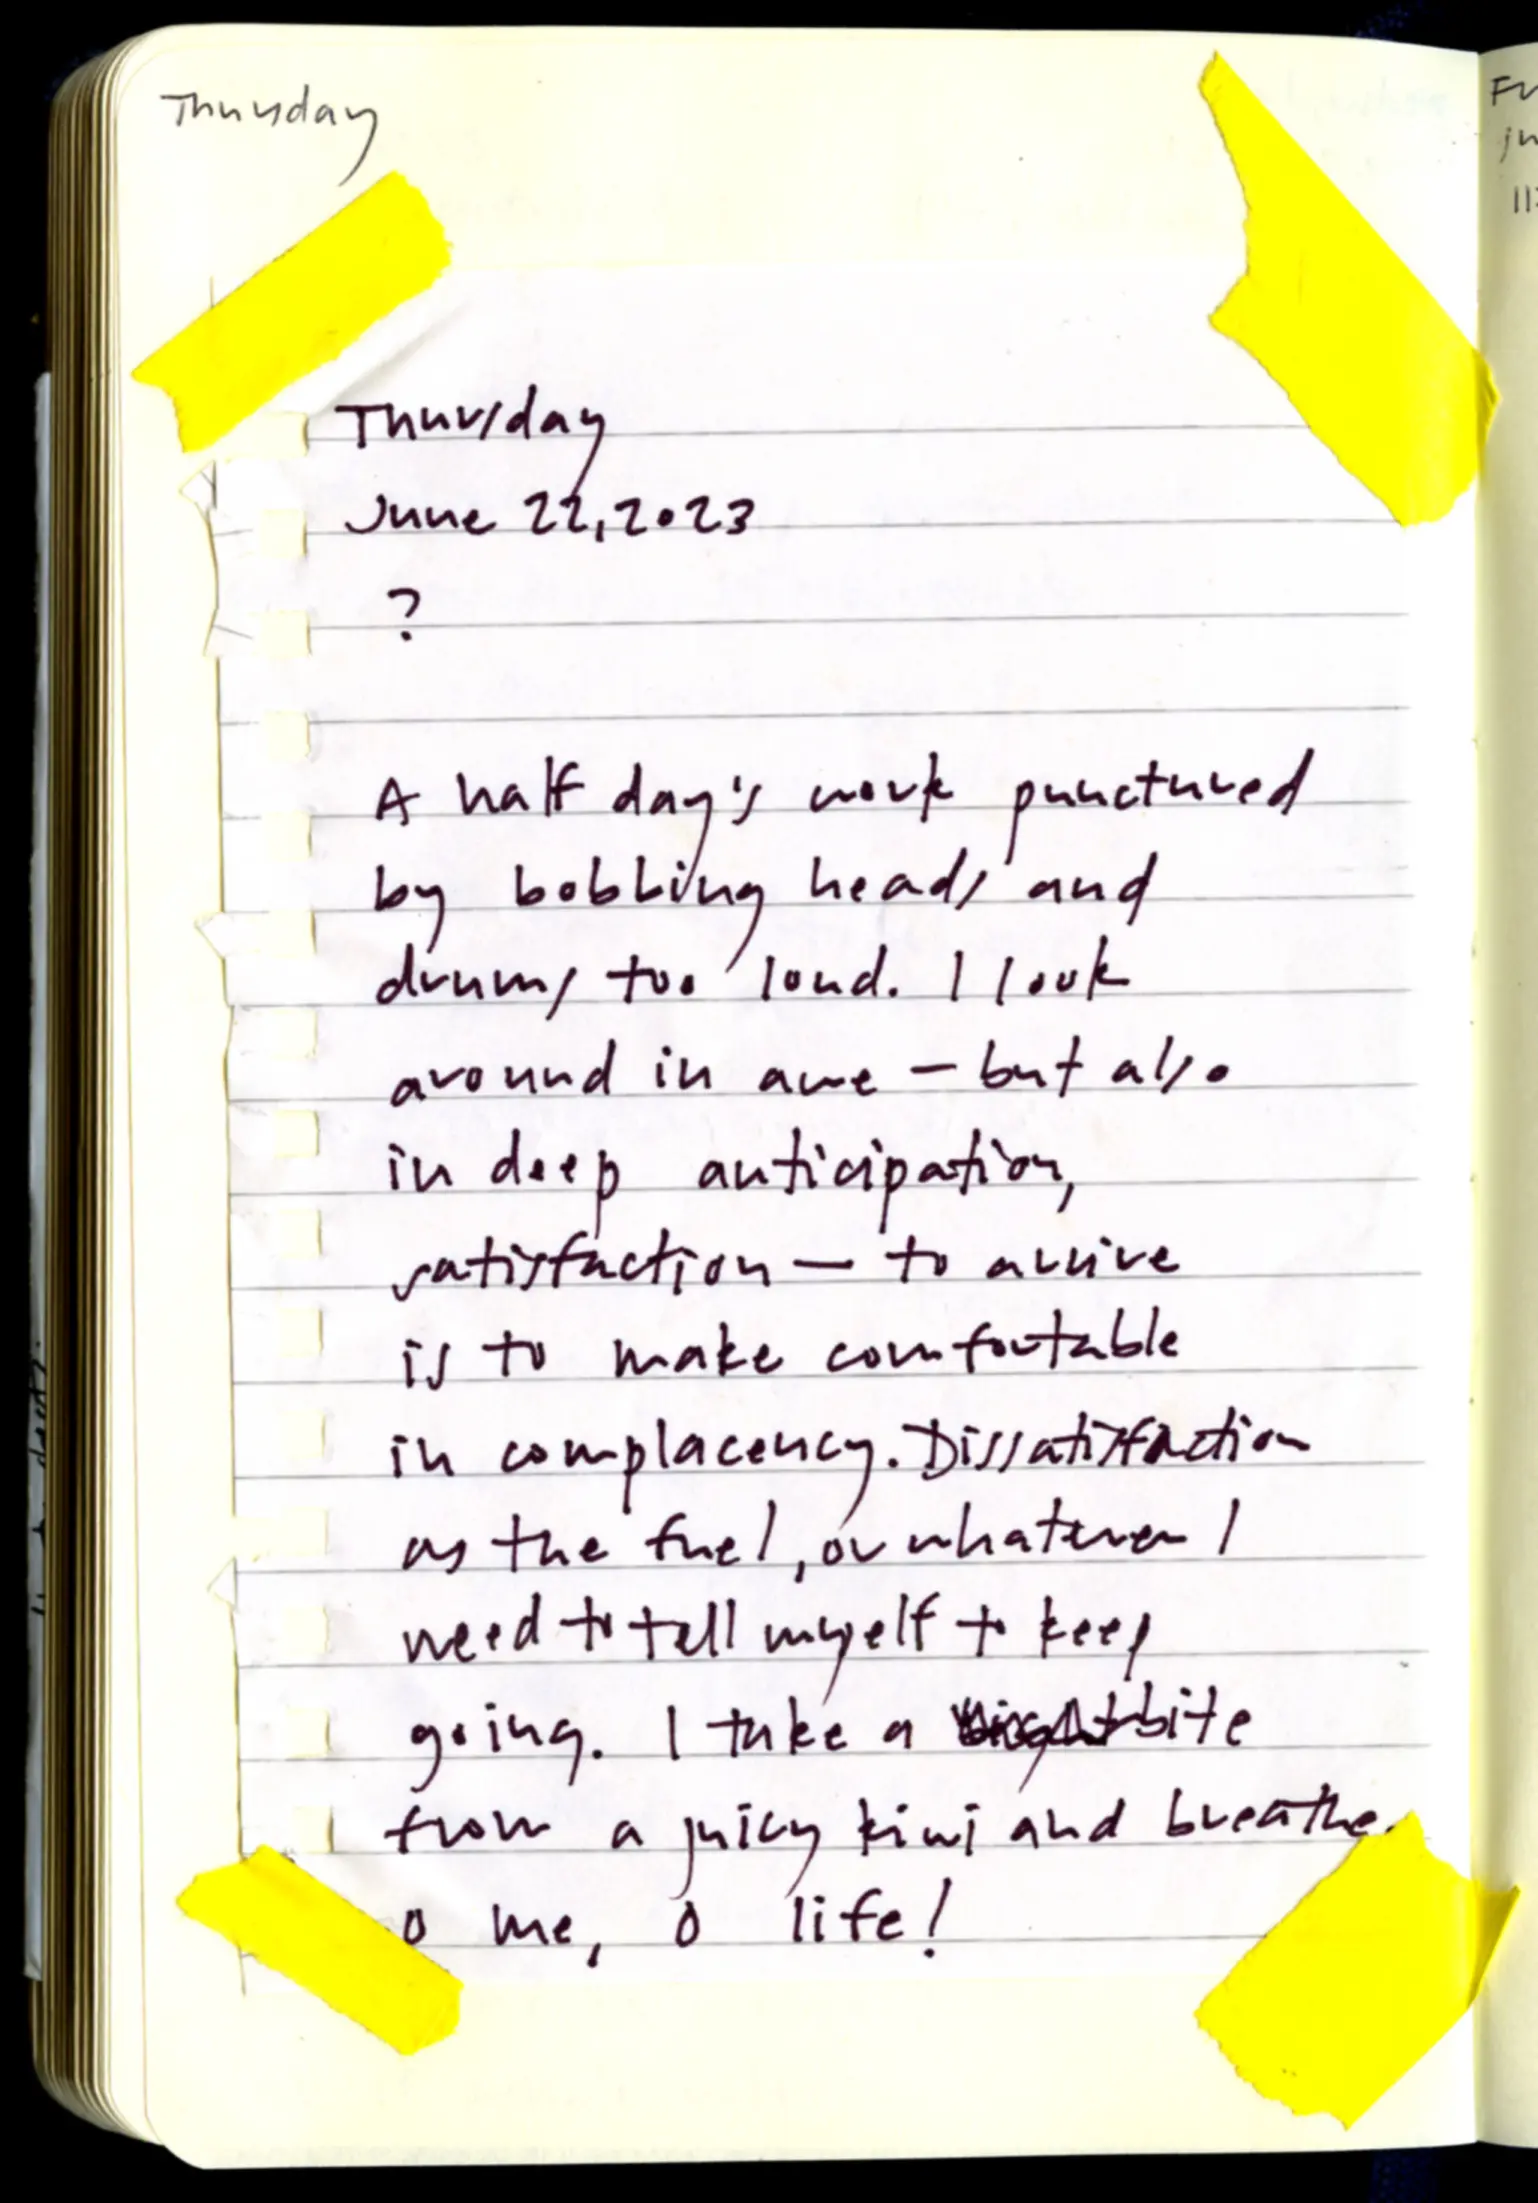 Thursday
Thursday
June 22, 2023
?
A half day's work punctured
by bobbing heads and
drums too loud. I look
around in awe – but also
in deep anticipation,
satisfaction – to arrive
is to make comfortable
in complacency. Dissatisfaction
as the fuel, or whatever I
need to tell myself to keep
going. I take a bite
from a juicy kiwi and breathe.
O me, O life!